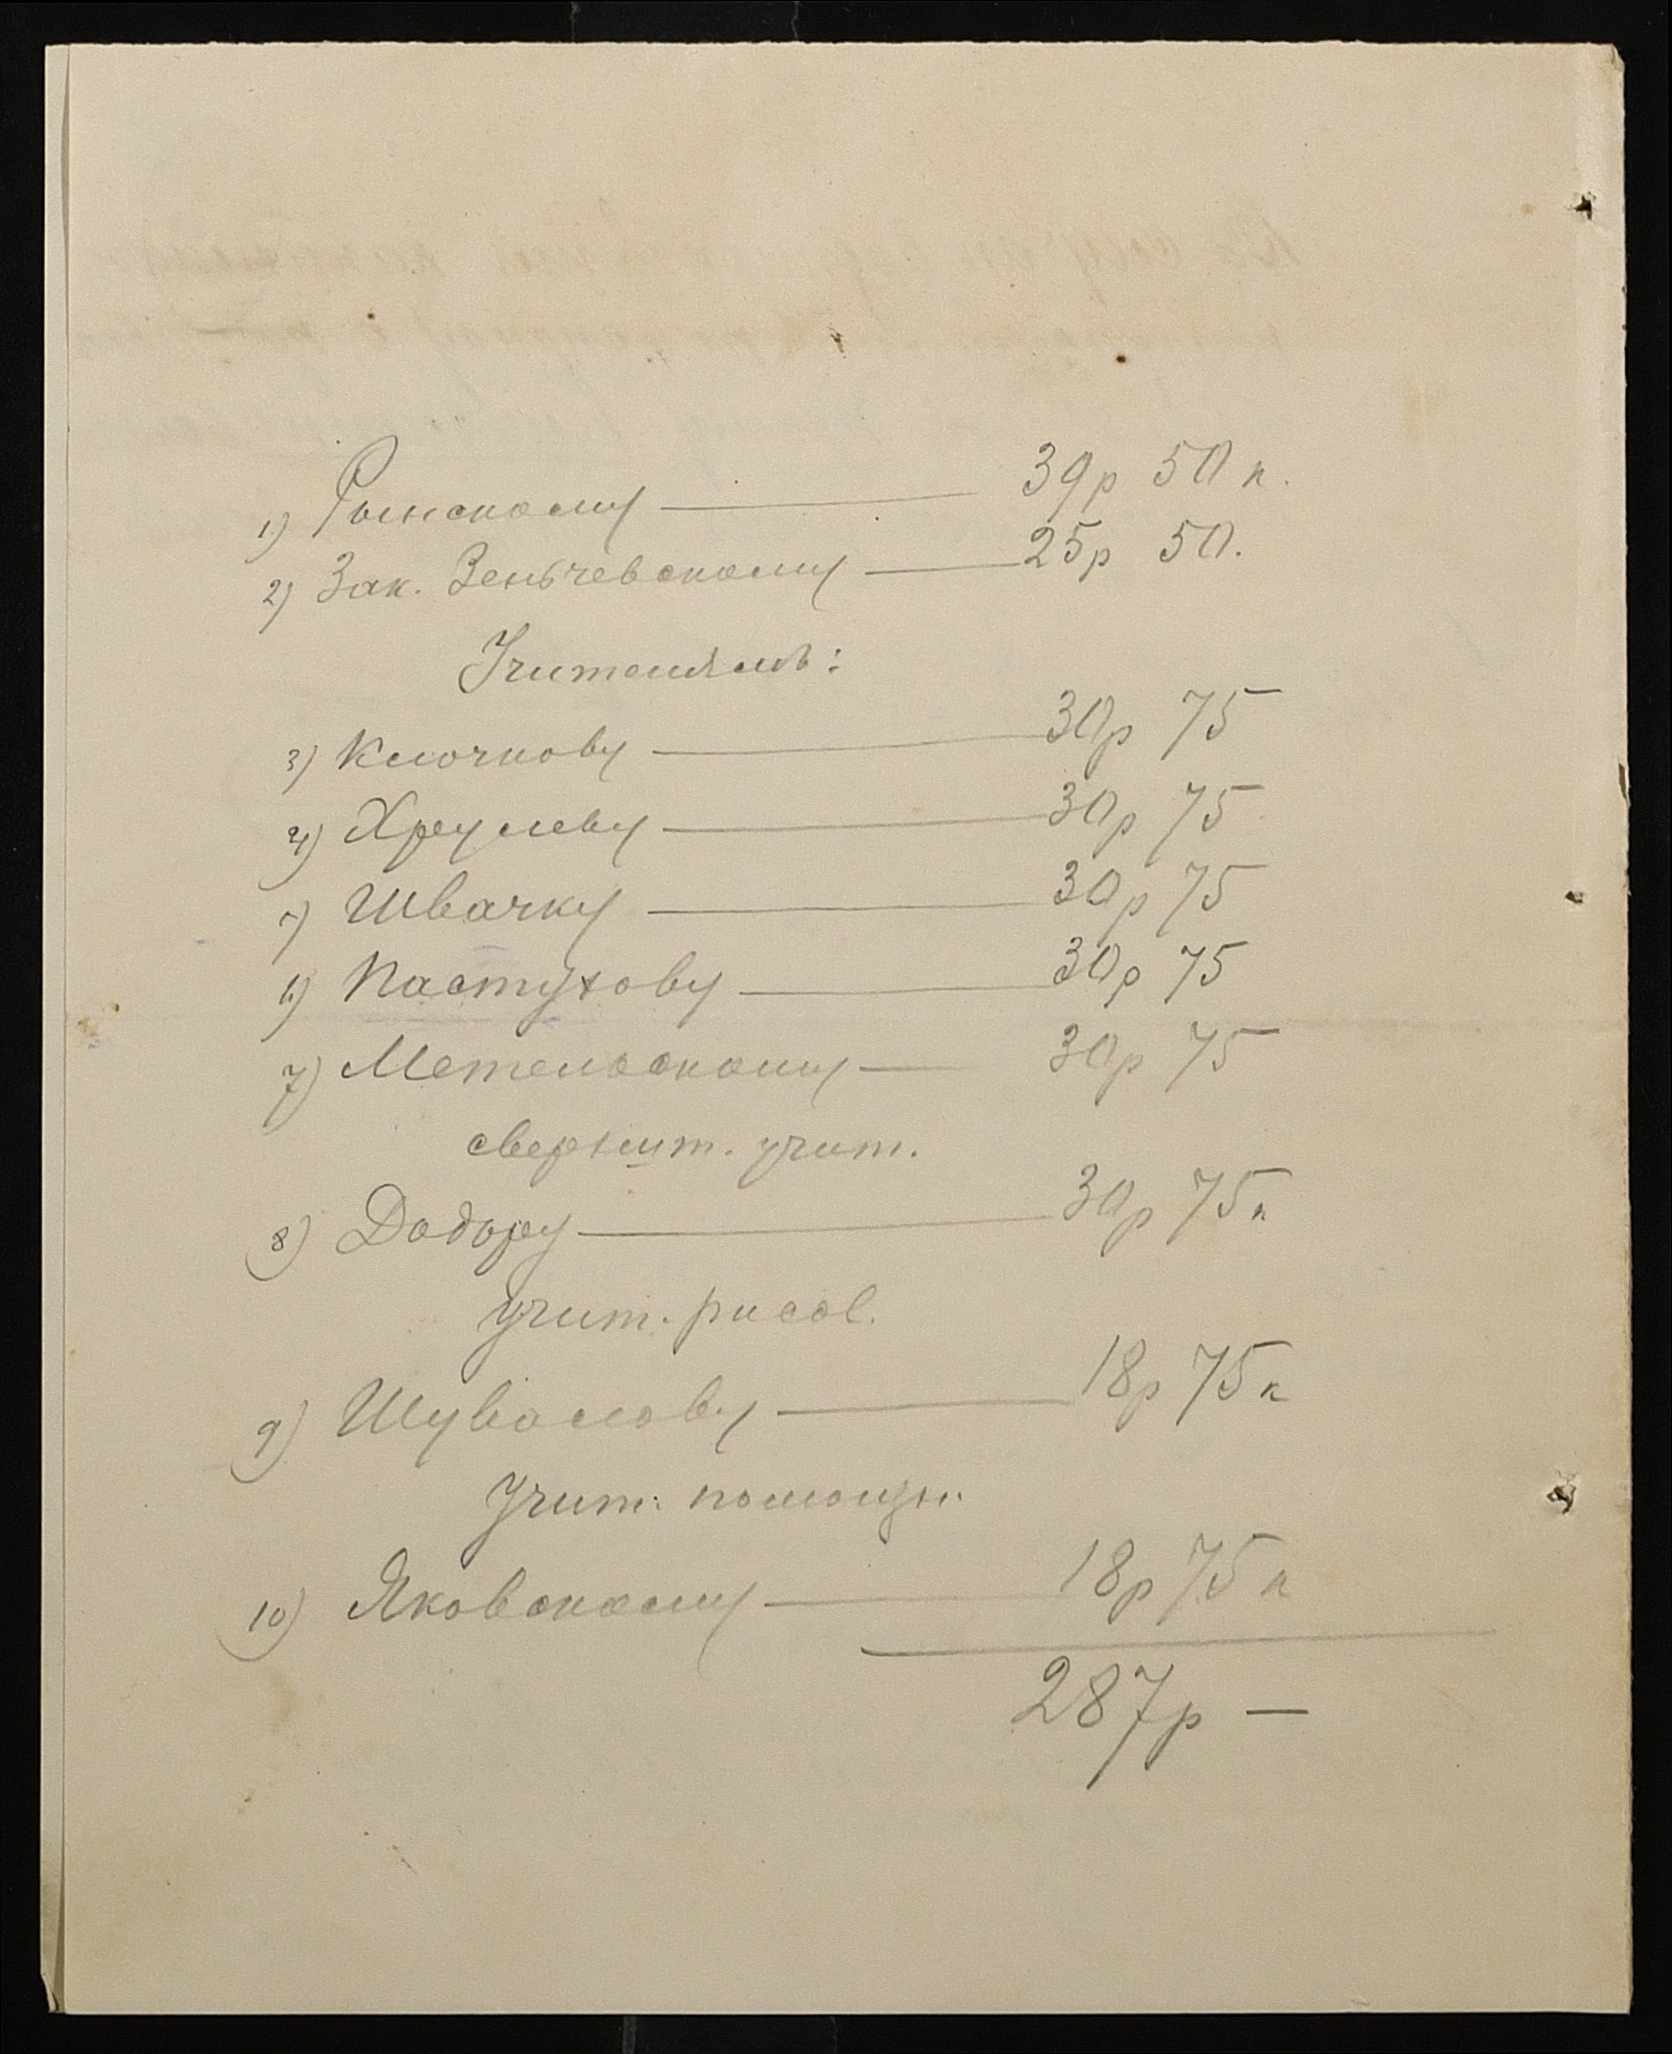 1) Рынскому — 39р 50 к.
2) Зак. Зеньчевскому — 25р 50.
Учителямъ:
3) Клочкову — 30р 75
4) Хрулеву — 30р 75
5) Швачку — 30р 75
6) Пастухову — 30р 75
7) Метельскому — 30р 75
сверхшт. учит.
8) Додору — 30р 75к
учит. рисов.
9) Шувалову — 18р 75к
Учит. помощн.
10) Яковскому — 18р 75к
287р —